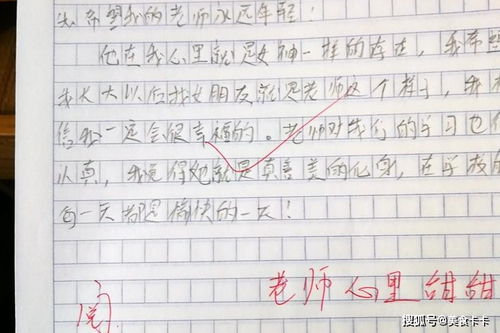 我希望我的老师永远年轻！
他在我心里就是女神一样的存在，我希望
我长大以后找女朋友就是老师这个样子，我相
信我一定会很幸福的。老师对我们的学习也很
认真，我觉得她就是真善美的化身，在学校的
每一天都是愉快的一天！
老师心里甜甜
阅
搜狐号@美食卡卡